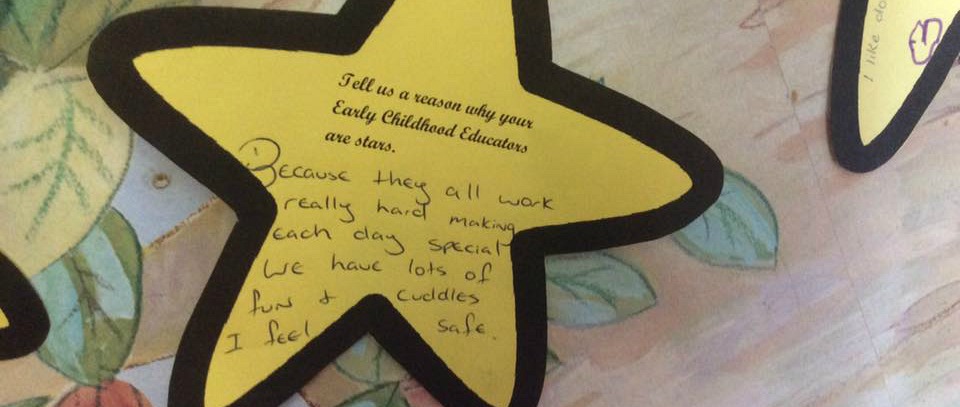 Tell us a reason why your
Early Childhood Educators
are stars.
Because they all work
really hard making
each day special
We have lots of
fun & cuddles
I feel safe.
I like do